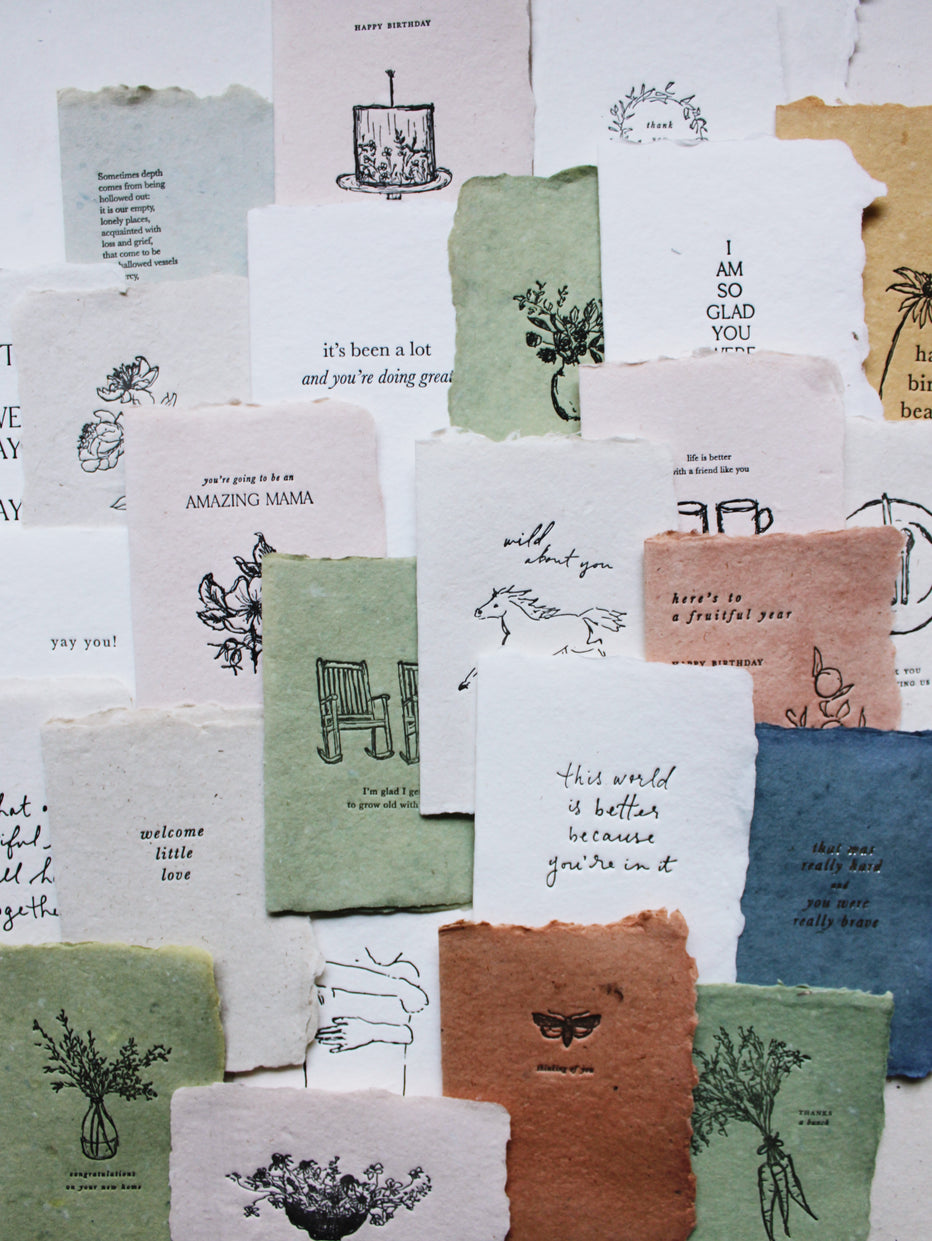 HAPPY BIRTHDAY
thank
Sometimes depth
comes from being
hollowed out:
it is our empty,
lonely places,
acquainted with
loss and grief,
that come to be
hallowed vessels
I
AM
SO
GLAD
YOU
WERE
it's been a lot
and you're doing great
ha
bir
bea
AY
AY
you're going to be an
AMAZING MAMA
life is better
with a friend like you
wild
about you
here's to
a fruitful year
HAPPY BIRTHDAY
yay you!
I'm glad I ge
to grow old with
this world
is better
because
you're in it
welcome
little
love
that was
really hard
and
you were
really brave
thinking of you
THANKS
a bunch
congratulations
on your new home